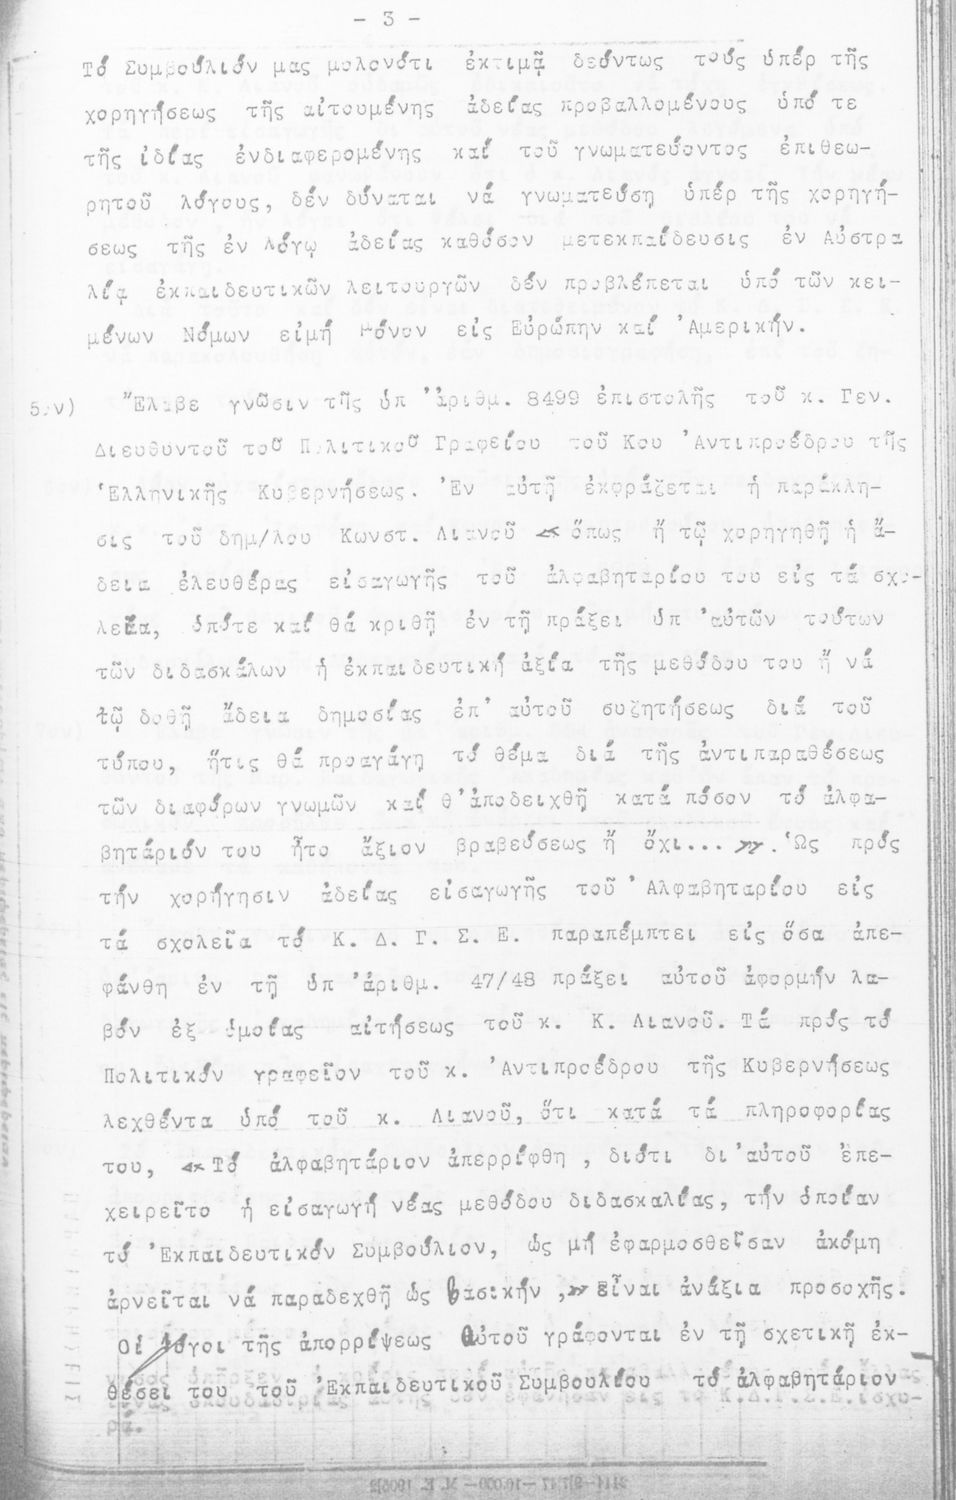 - 3 -
Τό Συμβούλιόν μας μολονότι ἐκτιμᾷ δεόντως τούς ὑπέρ τῆς
χορηγήσεως τῆς αἰτουμένης ἀδείας προβαλλομένους ὑπό τε
τῆς ἰδίας ἐνδιαφερομένης καί τοῦ γνωματεύοντος ἐπιθεω-
ρητοῦ λόγους, δέν δύναται νά γνωματεύσῃ ὑπέρ τῆς χορηγή-
σεως τῆς ἐν λόγῳ ἀδείας καθόσον μετεκπαίδευσις ἐν Αὐστρα
λίᾳ ἐκπαιδευτικῶν λειτουργῶν δέν προβλέπεται ὑπό τῶν κει-
μένων Νόμων εἰμή μόνον εἰς Εὐρώπην καί Ἀμερικήν.
5ον) Ἔλαβε γνῶσιν τῆς ὑπ' ἀριθμ. 8499 ἐπιστολῆς τοῦ κ. Γεν.
Διευθυντοῦ τοῦ Πολιτικοῦ Γραφείου τοῦ Κου Ἀντιπροέδρου τῆς
Ἑλληνικῆς Κυβερνήσεως. Ἐν αὐτῇ ἐκφράζεται ἡ παράκλη-
σις τοῦ δημ/λου Κωνστ. Λιανοῦ « ὅπως ἤ τῷ χορηγηθῇ ἡ ἄ-
δεια ἐλευθέρας εἰσαγωγῆς τοῦ ἀλφαβηταρίου του εἰς τά σχο-
λεῖα, ὁπότε καί θά κριθῇ ἐν τῇ πράξει ὑπ' αὐτῶν τούτων
τῶν διδασκάλων ἡ ἐκπαιδευτική ἀξία τῆς μεθόδου του ἤ νά
τῷ δοθῇ ἄδεια δημοσίας ἐπ' αὐτοῦ συζητήσεως διά τοῦ
τύπου, ἥτις θά προαγάγῃ τό θέμα διά τῆς ἀντιπαραθέσεως
τῶν διαφόρων γνωμῶν καί θ' ἀποδειχθῇ κατά πόσον τό ἀλφα-
βητάριόν του ἦτο ἄξιον βραβεύσεως ἤ ὄχι... ». Ὡς πρός
τήν χορήγησιν ἀδείας εἰσαγωγῆς τοῦ Ἀλφαβηταρίου εἰς
τά σχολεῖα τό Κ. Δ. Γ. Σ. Ε. παραπέμπτει εἰς ὅσα ἀπε-
φάνθη ἐν τῇ ὑπ' ἀριθμ. 47/48 πράξει αὐτοῦ ἀφορμήν λα-
βόν ἐξ ὁμοίας αἰτήσεως τοῦ κ. Κ. Λιανοῦ. Τά πρός τό
Πολιτικόν γραφεῖον τοῦ κ. Ἀντιπροέδρου τῆς Κυβερνήσεως
λεχθέντα ὑπό τοῦ κ. Λιανοῦ, ὅτι κατά τά πληροφορίας
του, « Τό ἀλφαβητάριον ἀπερρίφθη , διότι δι' αὐτοῦ ἐπε-
χειρεῖτο ἡ εἰσαγωγή νέας μεθόδου διδασκαλίας, τήν ὁποίαν
τό Ἐκπαιδευτικόν Συμβούλιον, ὡς μή ἐφαρμοσθεῖσαν ἀκόμη
ἀρνεῖται νά παραδεχθῇ ὡς βασικήν ,» εἶναι ἀνάξια προσοχῆς.
Οἱ λόγοι τῆς ἀπορρίψεως αὐτοῦ γράφονται ἐν τῇ σχετικῇ ἐκ-
θέσει του τοῦ Ἐκπαιδευτικοῦ Συμβουλίου τό ἀλφαβητάριον